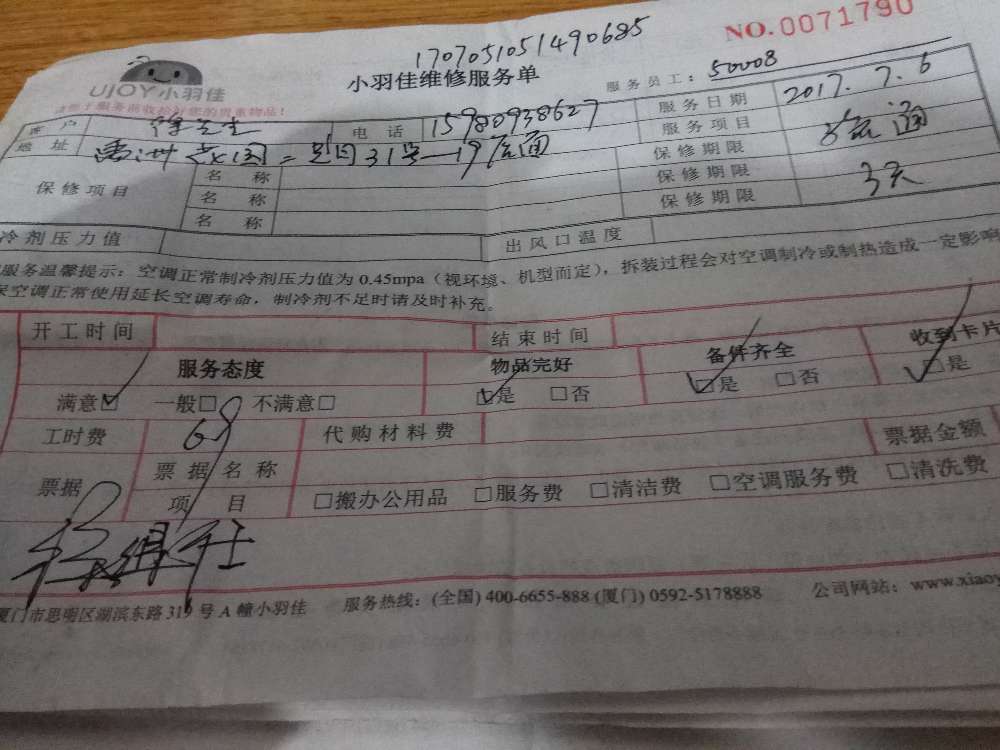 NO.0071790
1707051051490685
UJOY小羽佳
小羽佳维修服务单
服务员工：50008
客户 徐先生 电话 15980938627 服务日期 2017.7.6
地址 31号 服务项目 通
保修项目 名称 保修期限
名称 保修期限 3天
名称 保修期限
冷剂压力值 出风口温度
服务温馨提示：空调正常制冷剂压力值为 0.45mpa（视环境、机型而定），拆装过程会对空调制冷或制热造成一定影响
保空调正常使用延长空调寿命，制冷剂不足时请及时补充。
开工时间 结束时间
服务态度 物品完好 备件齐全 收到卡片
满意☑ 一般□ 不满意□ ☑是 □否 ☑是 □否 ☑是
工时费 代购材料费 票据金额
票据 票据名称
项目 □搬办公用品 □服务费 □清洁费 □空调服务费 □清洗费
厦门市思明区湖滨东路 319 号 A 幢小羽佳 服务热线：(全国) 400-6655-888 (厦门) 0592-5178888 公司网站：www.xiaoy